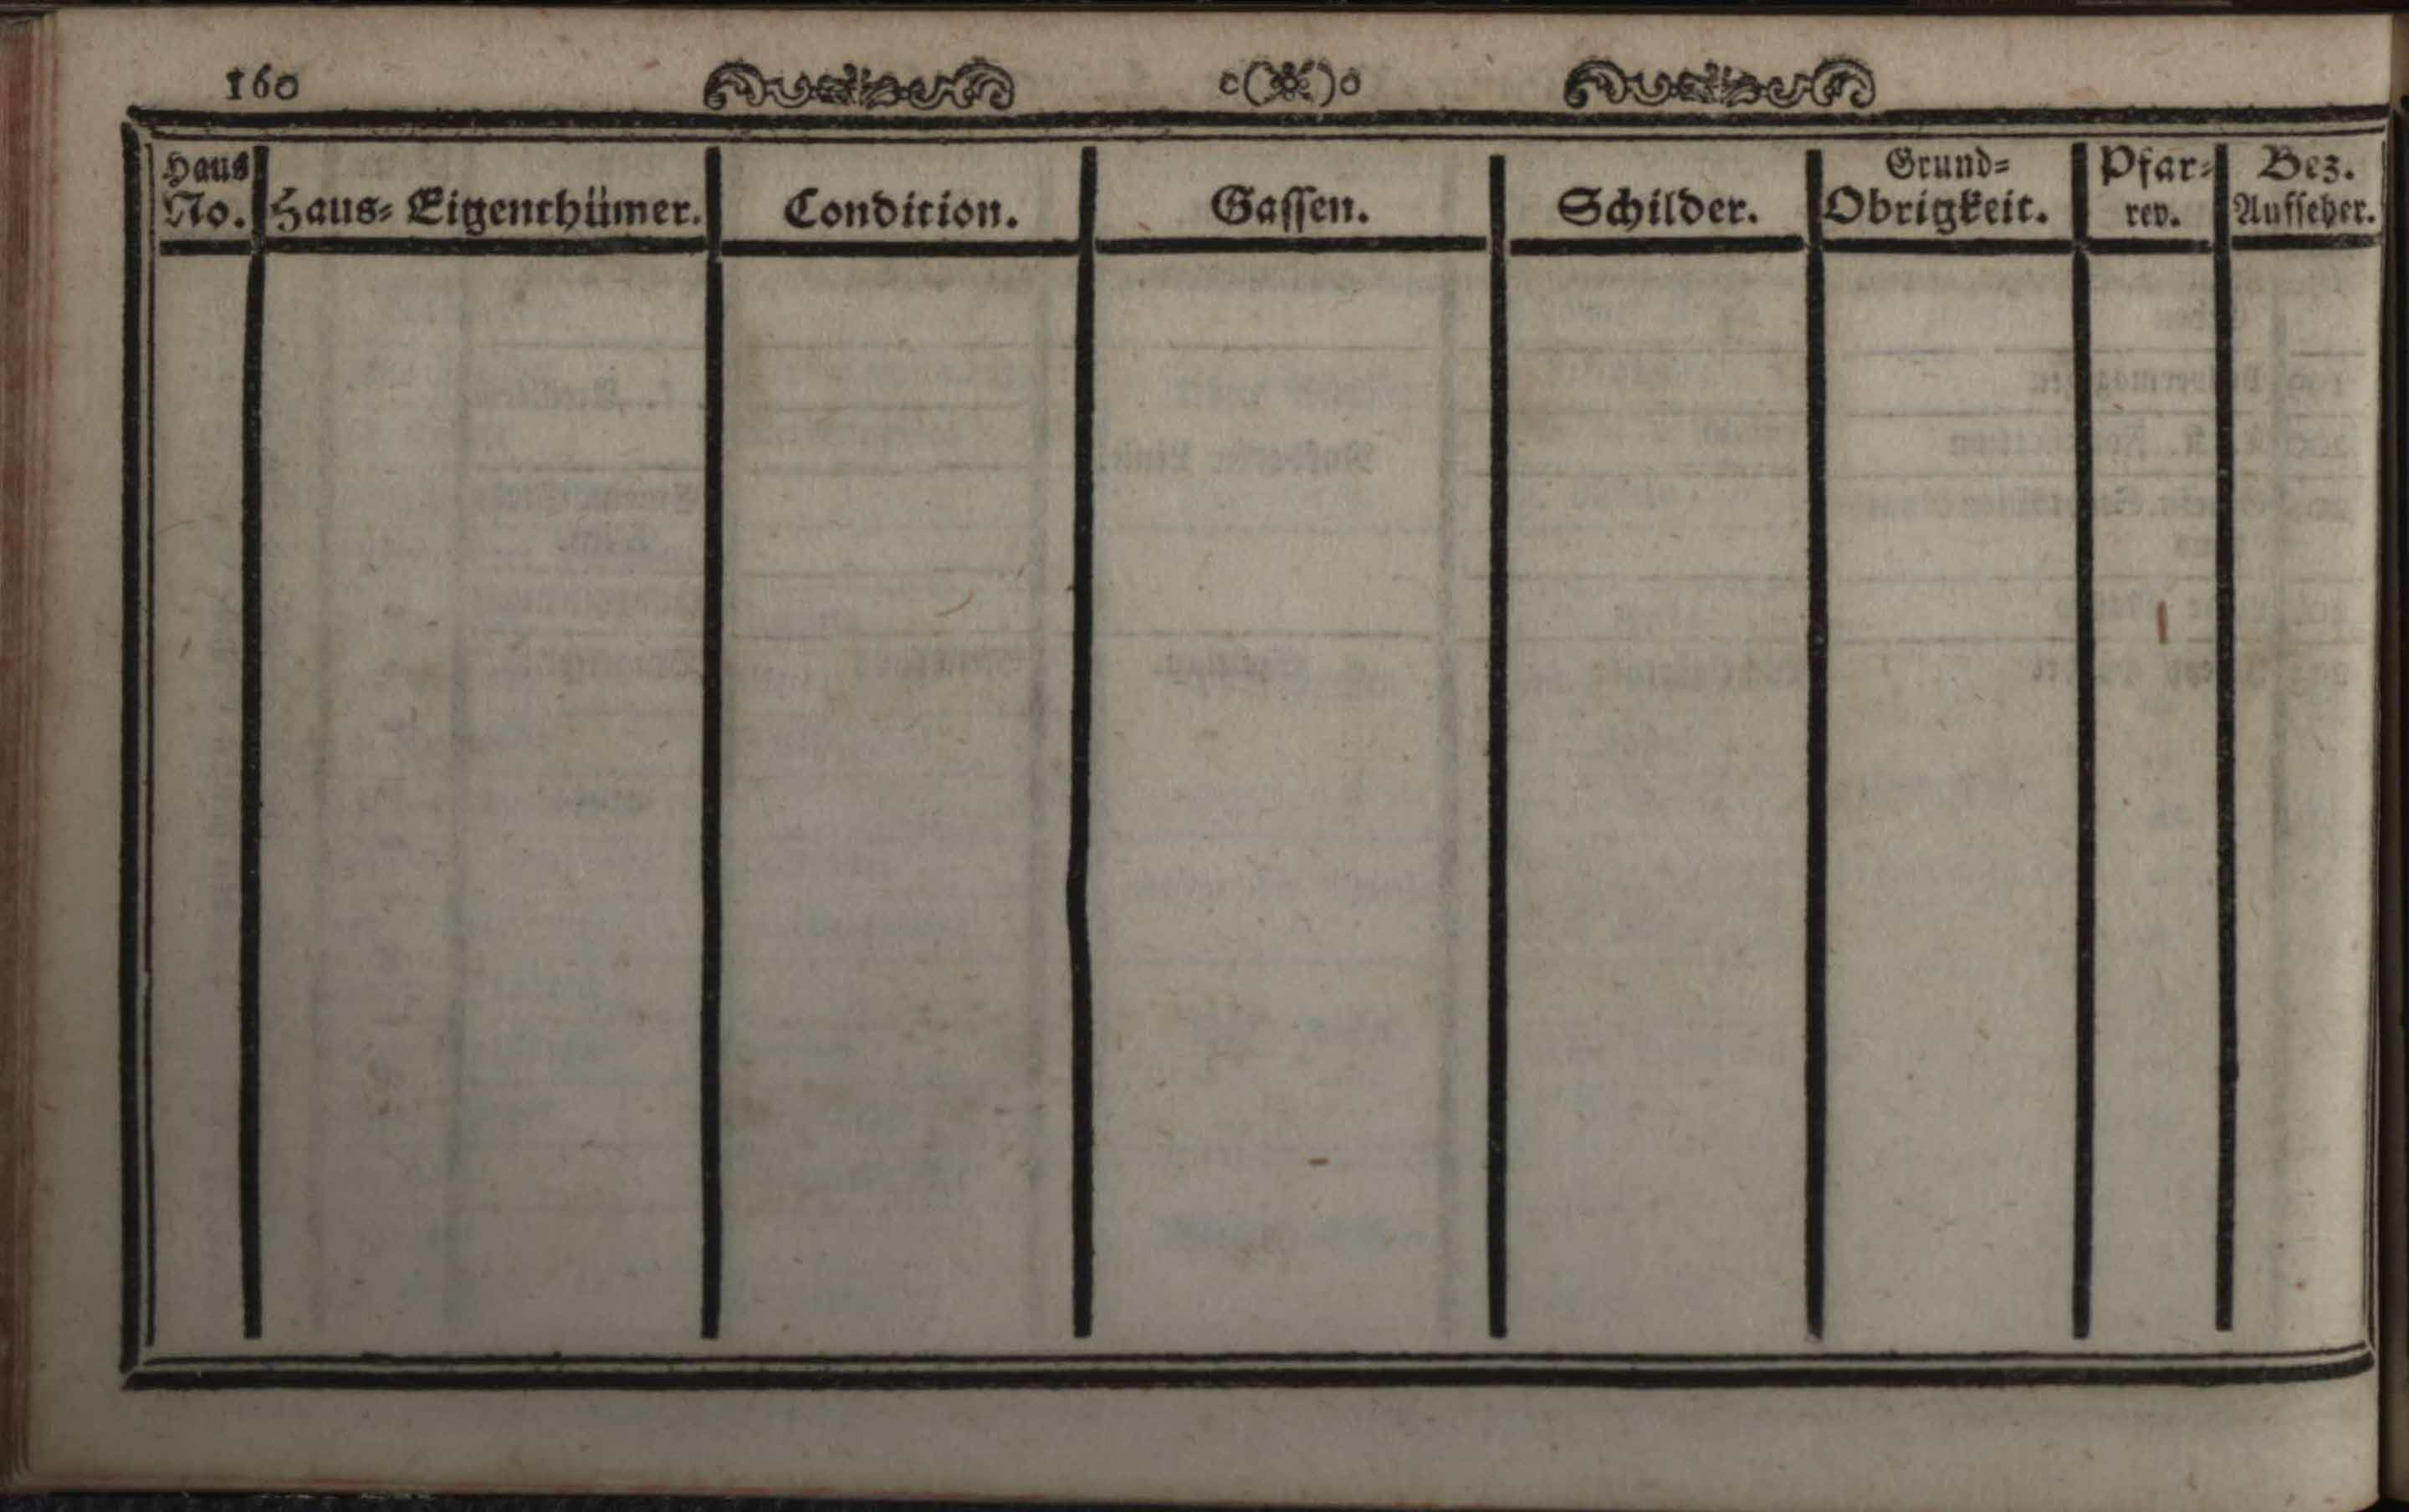 160
Haus No.
Haus-Eigenthümer.
Condition.
Gassen.
Schilder.
Grund-
Obrigkeit.
Pfar-
rey.
Bez.
Aufseher.